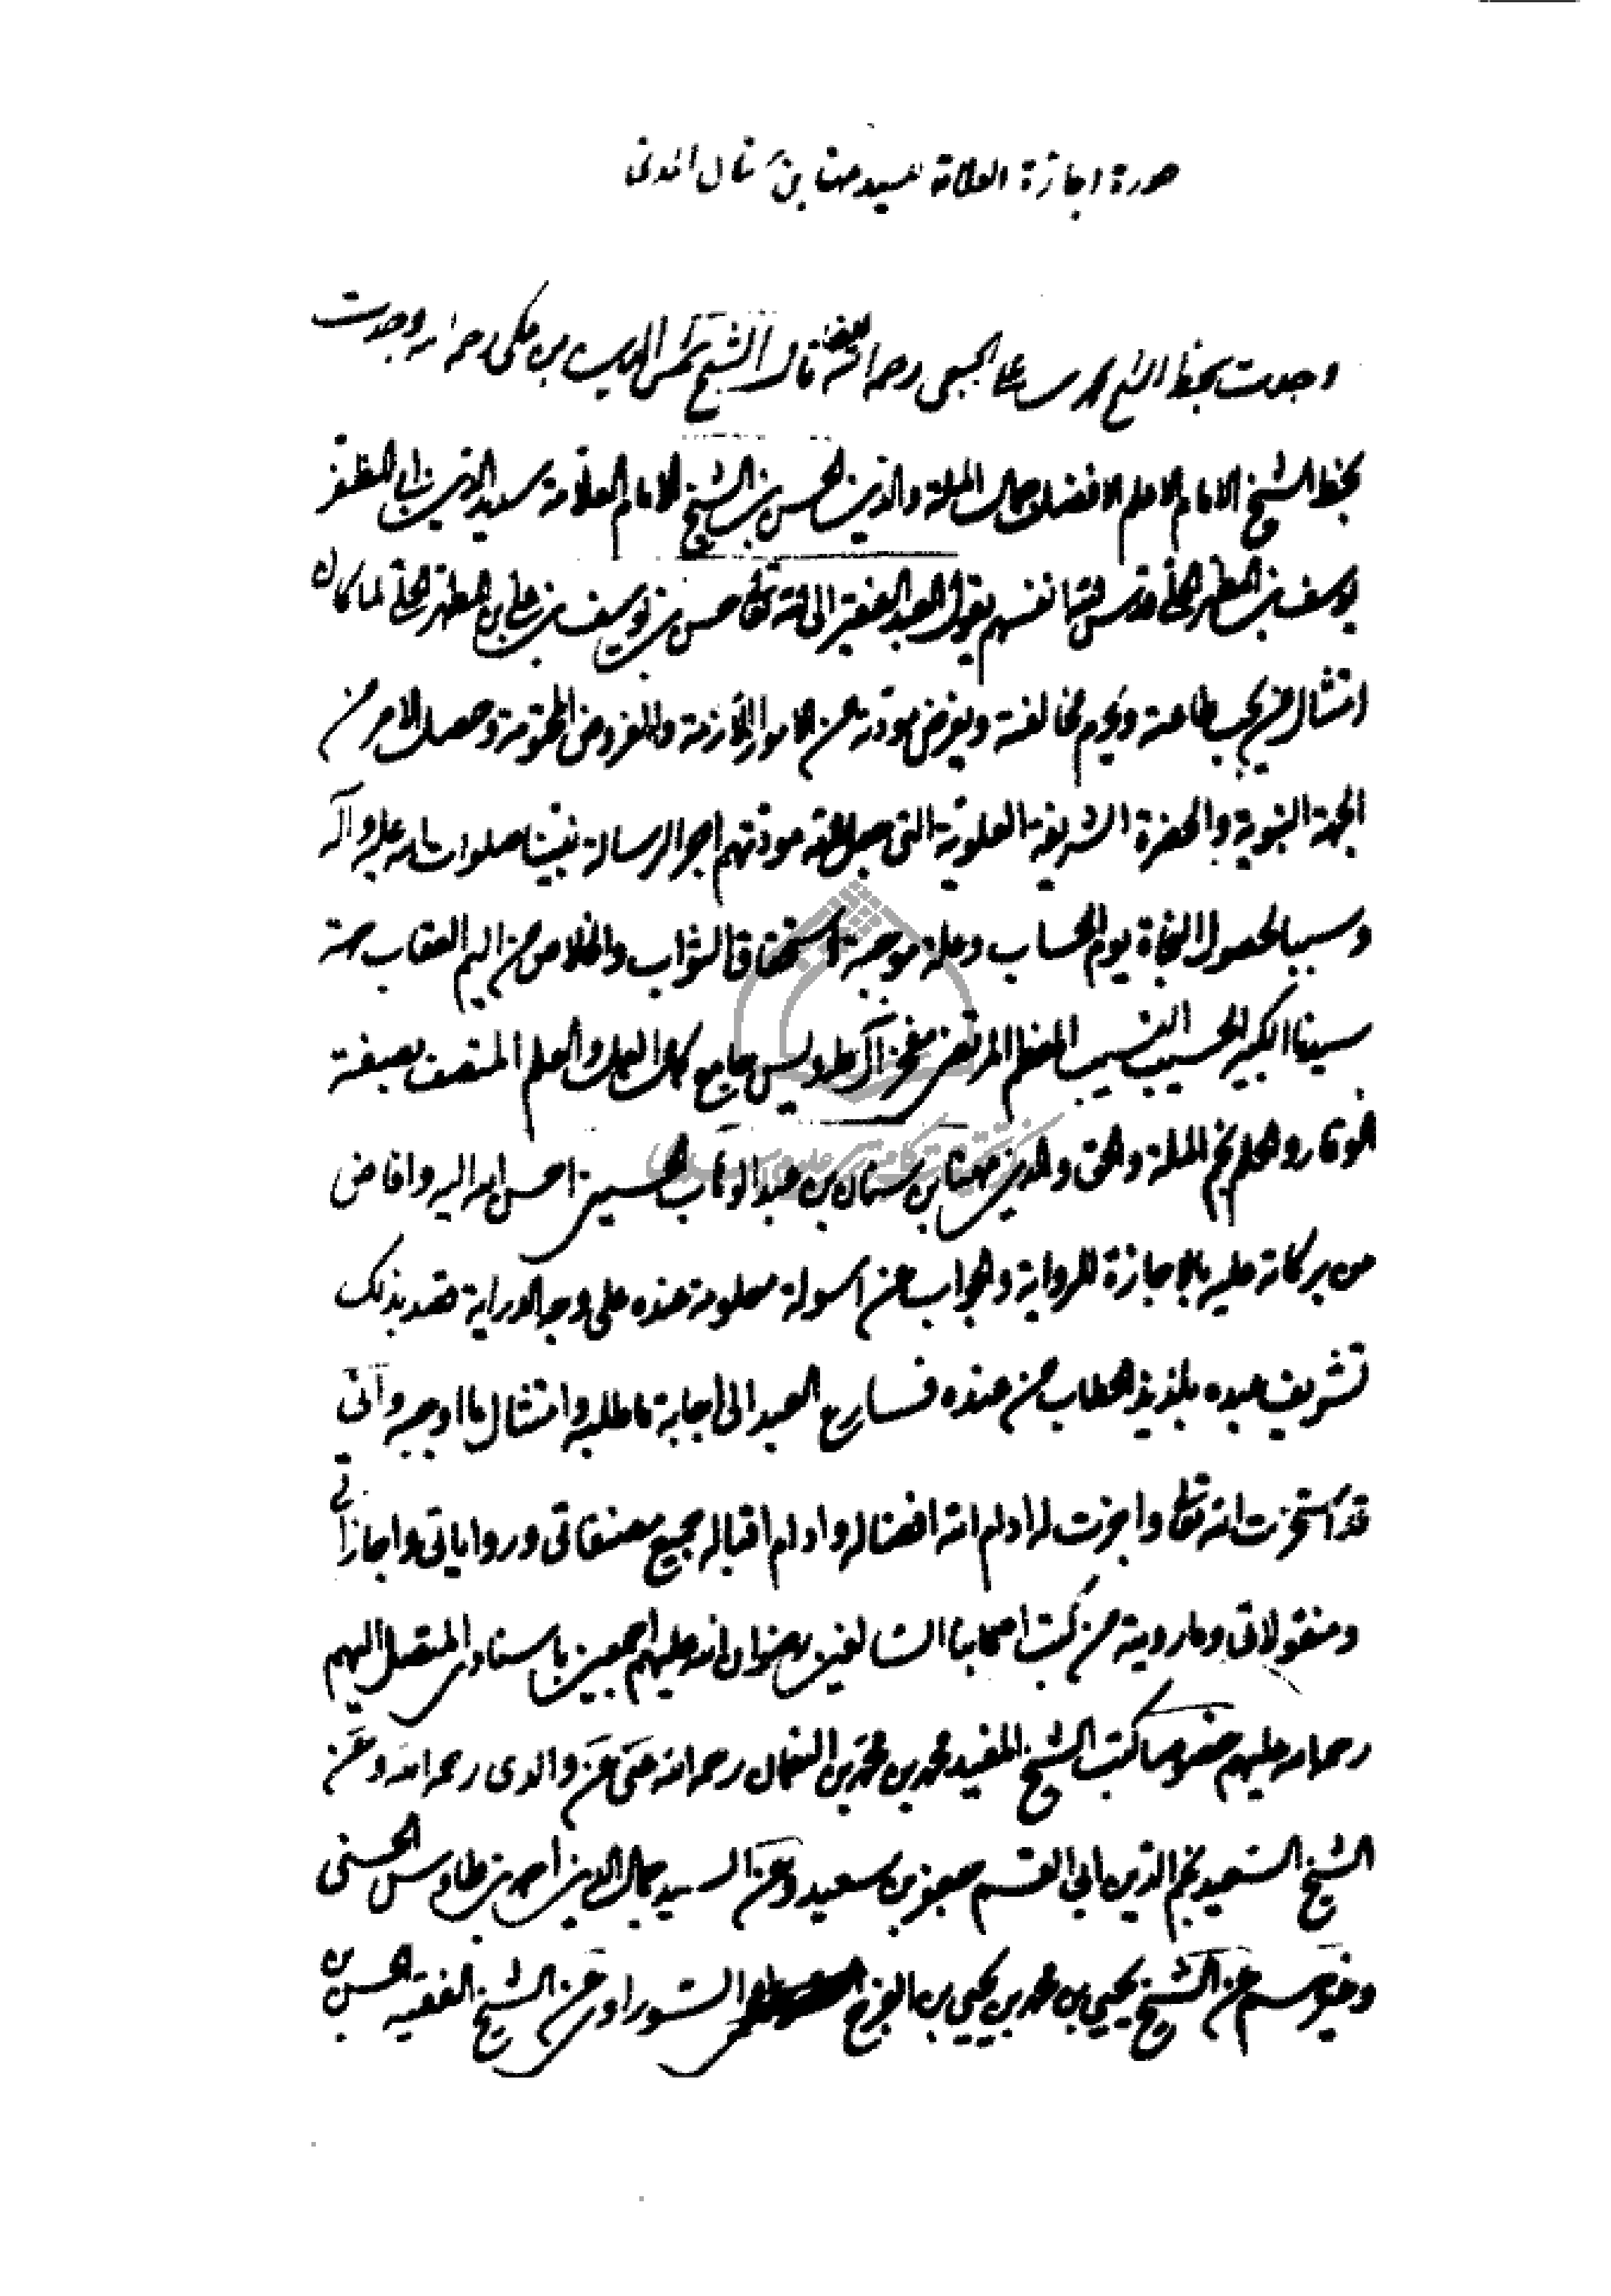 صورة اجازة العلامة للسيد مهنا بن سنان المدنى
وجدت بخط الشيخ محمد بن على الجبعى رحمه الله قال الشيخ شمس الدين بن مكى رحمه الله وجدت
بخط الشيخ الامام الاعلم الافضل جمال الملة والدين الحسن بن الشيخ الامام العلامة سديد الدين ابى المظفر
يوسف بن المطهر الحلى قدس الله انفسهم يقول العبد الفقير الى الله تعالى حسن بن يوسف بن على بن المطهر الحلى لما كان
امتثال من يجب طاعته ويحرم مخالفته ويفرض مودته من الامور اللازمة والفروض المحتومة وحصل الامر من
الجهة النبوية والحضرة الشريفة العلوية التى جعل الله مودتهم اجر الرسالة نبينا صلوات الله عليه وآله
وسببا لحصول النجاة يوم الحساب وعلة موجبة لاستحقاق الثواب والخلاص من اليم العقاب جهة
سيدنا الكبير الحسيب النسيب المعظم المرتضى مفخر آل طه ويس جامع كمال العمل والعلم المتصف بصفة
الوقار والحلم نجم الملة والحق والدين مهنا بن سنان بن عبد الوهاب الحسينى احسن الله اليه وافاض
من بركاته عليه بالاجازة للرواية والجواب عن اسولة معلومة عنده على وجه الدراية قصد بذلك
تشريف عبده بلذيذ الخطاب من عنده فسارع العبد الى اجابة ما طلبه وامتثال ما اوجبه وانى
قد استخرت الله تعالى واجزت له ادام الله افضاله وادام اقباله جميع مصنفاتى ورواياتى واجازاتى
ومنقولاتى وما رويته من كتب اصحابنا السالفين رضوان الله عليهم اجمعين باسنادى المتصل اليهم
رحمة الله عليهم خصوصا كتب الشيخ المفيد محمد بن محمد بن النعمان رحمه الله عنى عن والدى رحمه الله وعن
الشيخ السعيد نجم الدين ابى القسم جعفر بن سعيد وعن السيد جمال الدين احمد بن طاوس الحسنى
وغيرهم عن الشيخ يحيى بن محمد بن يحيى بن الفرج السوراوى عن الشيخ الفقيه الحسن بن